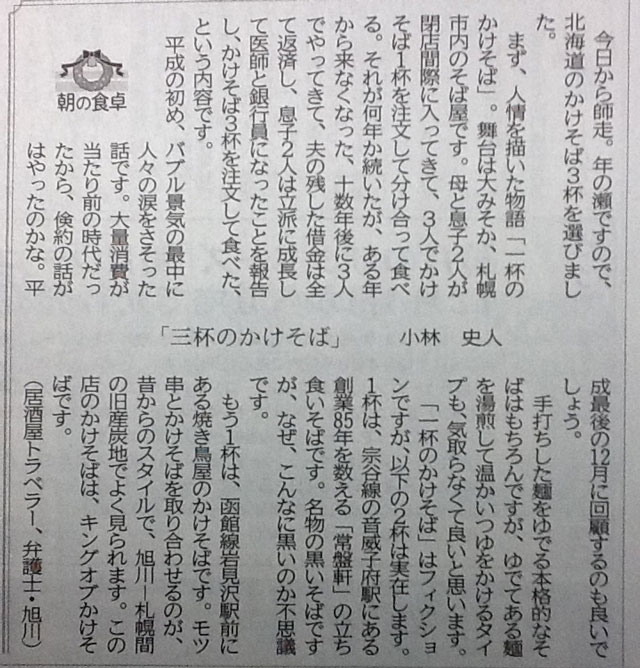 朝の食卓
「三杯のかけそば」 小林 史人
今日から師走。年の瀬ですので、
北海道のかけそば3杯を選びまし
た。
まず、人情を描いた物語「一杯の
かけそば」。舞台は大みそか、札幌
市内のそば屋です。母と息子2人が
閉店間際に入ってきて、3人でかけ
そば1杯を注文して分け合って食べ
る。それが何年か続いたが、ある年
から来なくなった、十数年後に3人
でやってきて、夫の残した借金は全
て返済し、息子2人は立派に成長し
て医師と銀行員になったことを報告
し、かけそば3杯を注文して食べた、
という内容です。
平成の初め、バブル景気の最中に
人々の涙をさそった
話です。大量消費が
当たり前の時代だっ
たから、倹約の話が
はやったのかな。平
成最後の12月に回顧するのも良いで
しょう。
手打ちした麺をゆでる本格的なそ
ばはもちろんですが、ゆでてある麺
を湯煎して温かいつゆをかけるタイ
プも、気取らなくて良いと思います。
「一杯のかけそば」はフィクショ
ンですが、以下の2杯は実在します。
1杯は、宗谷線の音威子府駅にある
創業85年を数える「常盤軒」の立ち
食いそばです。名物の黒いそばです
が、なぜ、こんなに黒いのか不思議
です。
もう1杯は、函館線岩見沢駅前に
ある焼き鳥屋のかけそばです。モツ
串とかけそばを取り合わせるのが、
昔からのスタイルで、旭川―札幌間
の旧産炭地でよく見られます。この
店のかけそばは、キングオブかけそ
ばです。
（居酒屋トラベラー、弁護士・旭川）